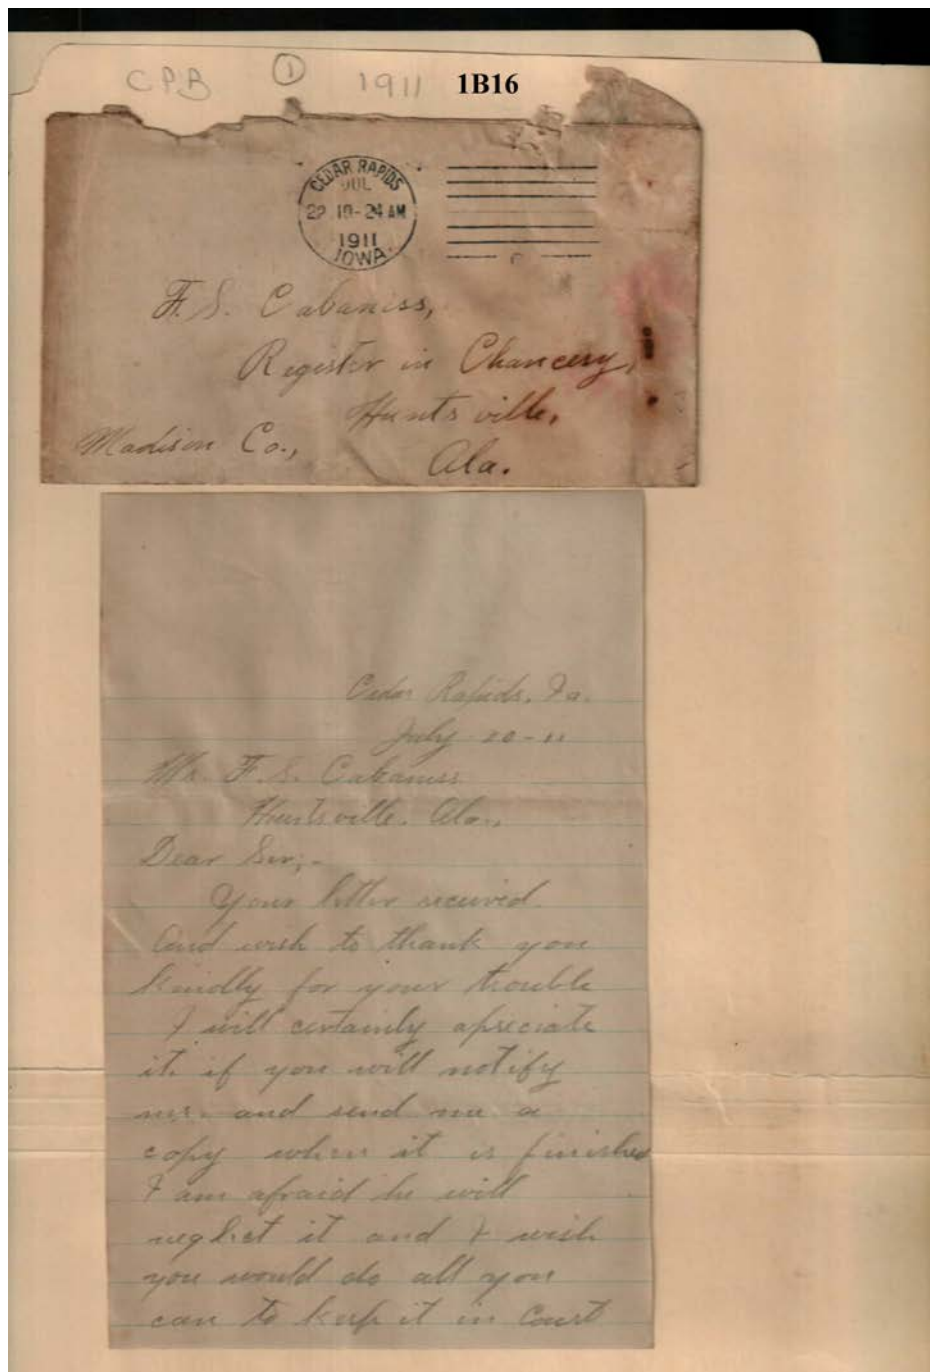 CPB 1 1911 1B16
CEDAR RAPIDS
JUL
22 10-24 AM
1911
IOWA
F. S. Cabaniss,
Register in Chancery,
Huntsville,
Madison Co.,
Ala.
Cedar Rapids, Ia.
July 20-11
Mr. F. S. Cabaniss
Huntsville, Ala.,
Dear Sir;-
Your letter received.
And wish to thank you
kindly for your trouble
I will certainly apreciate
it if you will notify
me. and send me a
copy when it is finished
I am afraid he will
neglect it and I wish
you would do all you
can to keep it in Court